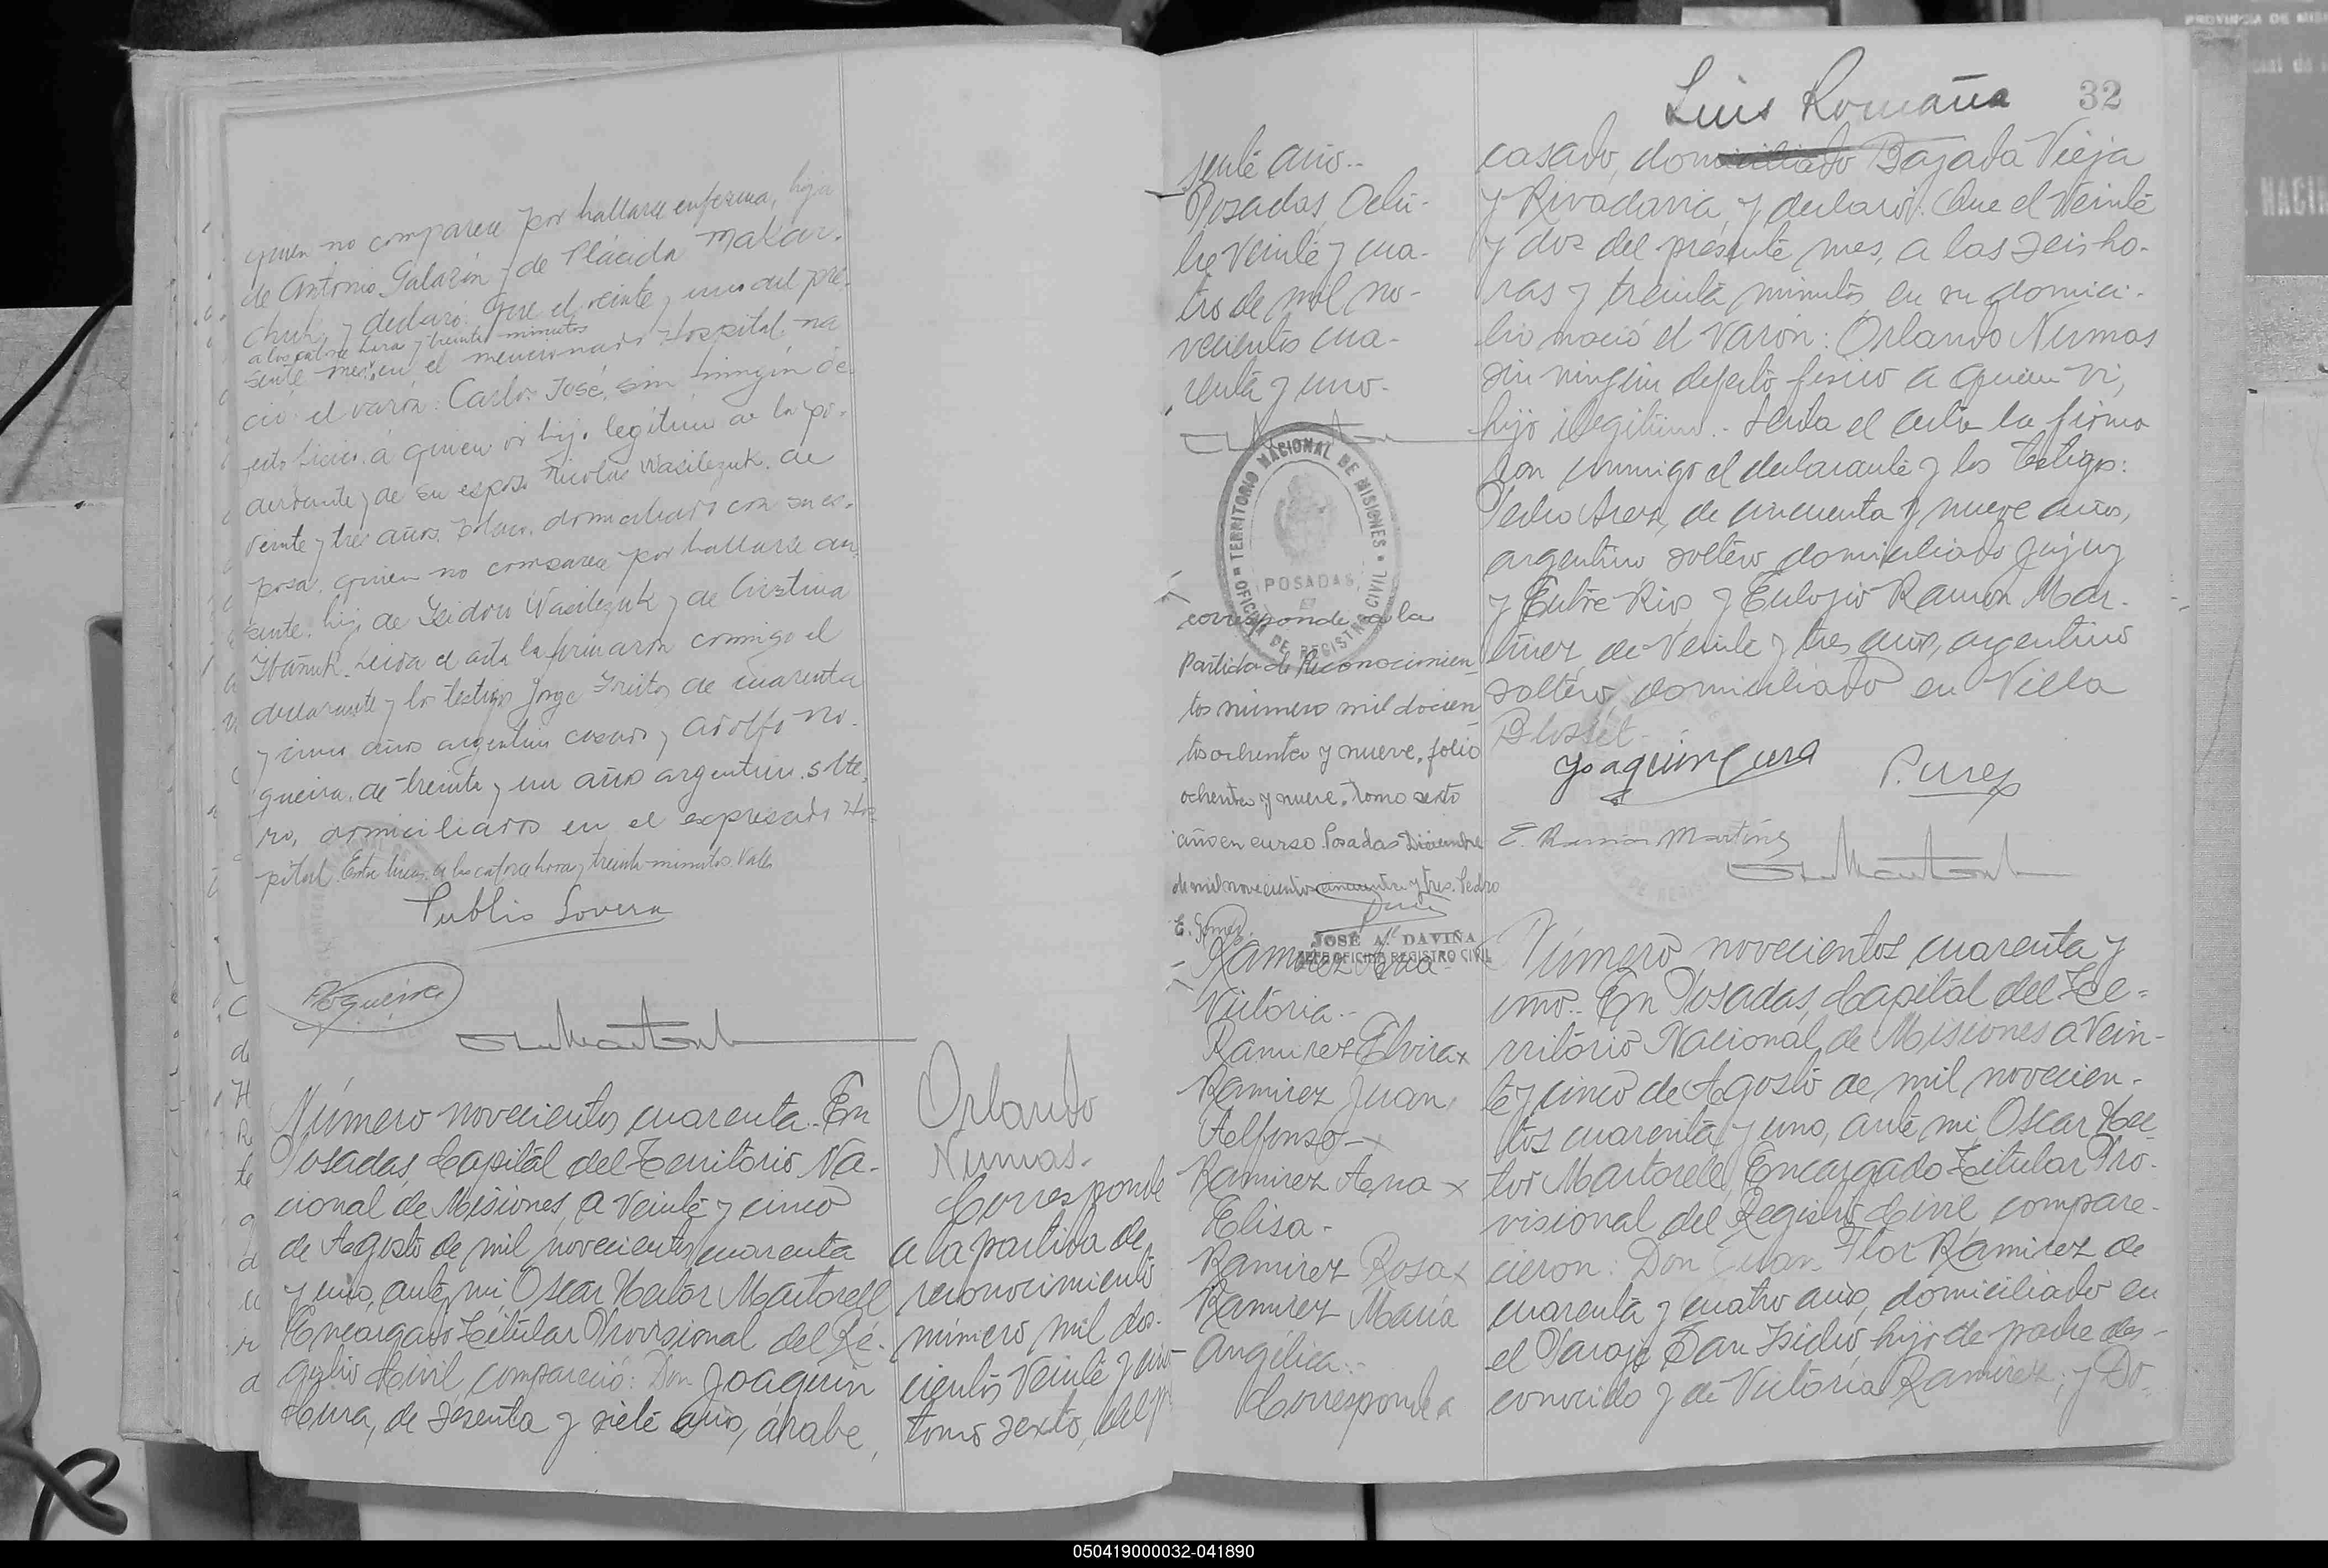 quien no comparece por hallarse enferma, hija
de Antonio Galarin y de Plácida Makar.
chuk, y declaró: Que el veinte y uno del pre-
a las catorce horas y treinta minutos
sente mes, en el mencionado Hospital na
ció el varón: Carlos José, sin ningún de
fecto físico, á quien vi hijo legítimo de la po-
derdante y de su esposo Nicolás Wasilezuk, de
veinte y tres años, polaco, domiciliado con su es-
posa, quien no comparece por hallarse au-
sente, hijo de Isidoro Wasilezuk y de Cristina
Leida el acta la firmaron conmigo el
declarante y los testigos Jorge Freitos de cuarenta
y cinco años argentino casado y Adolfo No-
gueira, de treinta y un años argentino, solte-
ro, domiciliados en el expresado Hos-
pital. Entre lineas: a las catorce horas y treinta minutos. Vale.
Publio Lovera
ANogueira
Número novecientos cuarenta.. En
Posadas, Capital del Territorio Na-
cional de Misiones, a veinte y cinco
de Agosto de mil novecientos cuarenta
y uno, ante mi, Oscar Hector Martorell
Encargado Titular Provisional del Re-
gistro Civil, compareció: Don Joaquin
Cura, de sesenta y siete años, árabe,
Orlando
Numas.
Corresponde
a la partida de
reconocimiento
número mil dos-
cientos veinte y cinco
tomo sexto, del pre
sente año..
Posadas, Octu-
bre veinte y cua-
tro de mil no-
vecientos cua-
renta y uno.
TERRITORIO NACIONAL DE MISIONES
POSADAS
OFICINA DE REGISTRO CIVIL
corresponde a la
Partida de Reconocimien
tos número mil docien
tos ochenta y nueve, folio
ochenta y nueve, Tomo sexto
año en curso. Posadas Diciembre
de mil novecientos cincuenta y tres. Pedro
E. Gómez.
JOSÉ A. DAVIÑA
JEFE OFICINA REGISTRO CIVIL
Ramirez Ana
Victoria..
Ramirez Elvira x
Ramirez Juan
Alfonso - x
Ramirez Ana x
Elisa -
Ramirez Rosa x
Ramirez Maria
Angélica..
Corresponde a
Luis Romaña
32
casado, domiciliado Bajada Vieja
y Rivadavia, y declaró: Que el veinte
y dos del presente mes, a las seis ho-
ras y treinta minutos, en su domici-
lio nació el varón: Orlando Numas
sin ningún defecto fisico a quien vi,
hijo ilegítimo.- Leida el acta la firma
ron conmigo el declarante y los testigos:
Pedro Arez, de cincuenta y nueve años,
argentino soltero domiciliado Jujuy
y Entre Rios, y Eulogio Ramón Mar-
tinez, de veinte y tres años, argentino
soltero, domiciliado en Villa
Blosset-
Joaquin Cura
P. Arez
E. Ramón Martínez
Número novecientos cuarenta y
uno.. En Posadas, Capital del Te=
rritorio Nacional de Misiones a vein-
te y cinco de Agosto de mil novecien-
tos cuarenta y uno, ante mi, Oscar Hec
tor Martorell, Encargado Titular Pro-
visional del Registro Civil, compare-
cieron: Don Juan Flor Ramirez de
cuarenta y cuatro años, domiciliado en
el Paraje San Isidro, hijo de padre des-
conocido y de Victoria Ramirez; y Do-
050419000032-041890